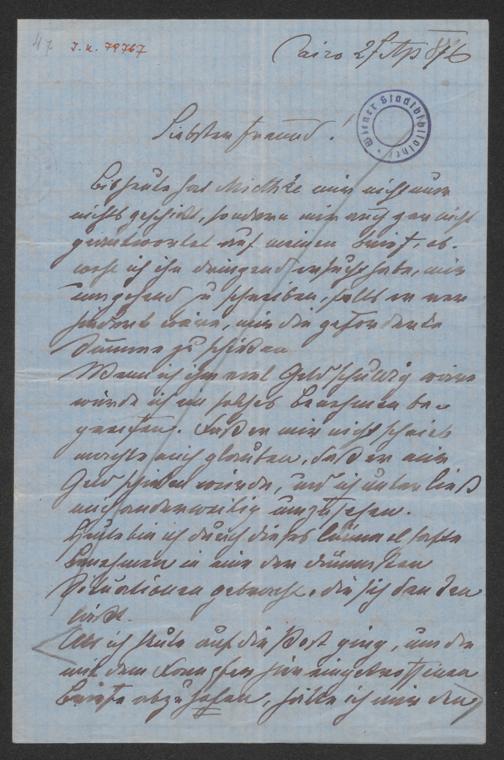 47
I. N. 79767
Cairo 27 Ap 876
Wiener Stadtbibliothek
Liebster Freund!
Bis heute hat Miethke mir nicht nur
nichts geschickt, sondern mir auch gar nicht
geantwortet auf meinen Brief, ob-
wohl ich ihn dringend ersucht habe, mir
umgehend zu schreiben, falls er ver
hindert wäre, mir die geforderte
Summe zu schicken
Wenn ich ihm viel Geld schuldig wäre
würde ich ein solches Benehmen be-
greifen. Daß er mir nicht schrieb
machte mich glauben, daß er mir
Geld schicken würde, und ich unterließ
mich anderweitig umzusehen.
Heute bin ich durch dieses lümmelhafte
Benehmen in eine der dümmsten
Situationen gebracht, die sich denken
läßt.
Als ich heute auf die Post ging, um die
mit dem Dampfer hier eingetroffenen
Briefe abzuholen, hätte ich mir den